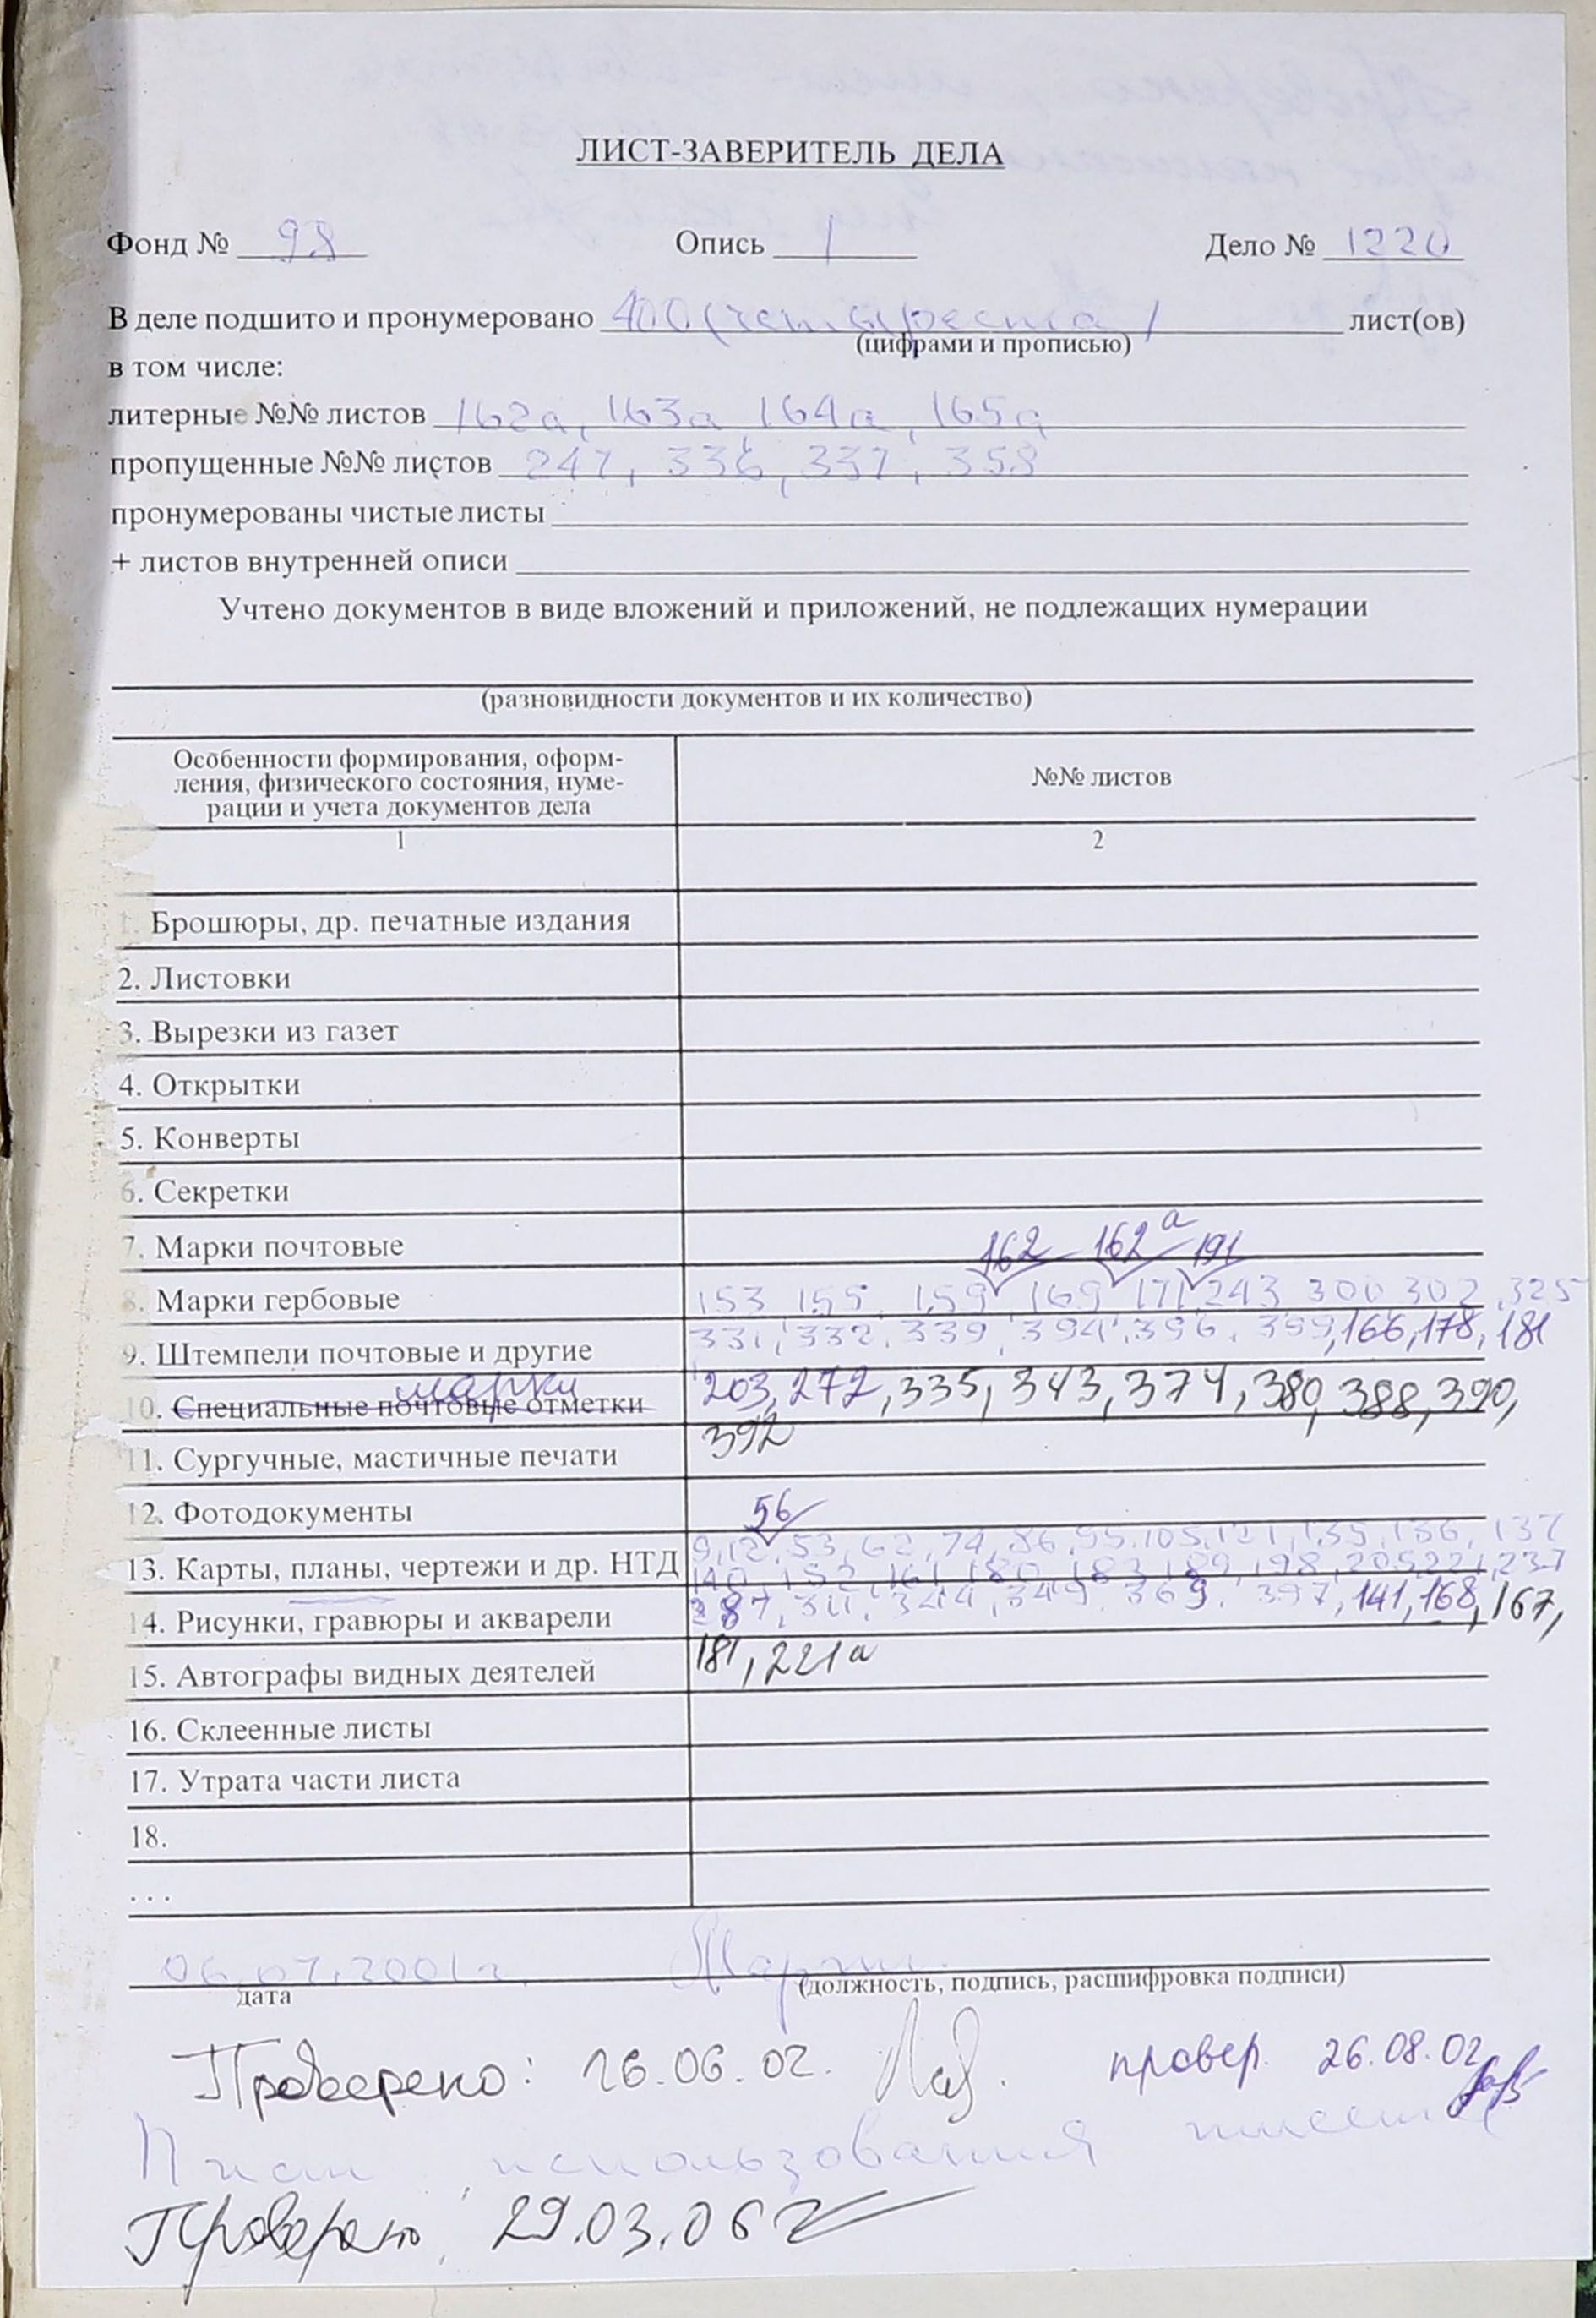 ЛИСТ-ЗАВЕРИТЕЛЬ ДЕЛА
Фонд № 98 Опись 1 Дело № 1220
В деле подшито и пронумеровано 400 (четыреста) лист(ов)
(цифрами и прописью)
в том числе:
литерные №№ листов 162а, 163а 164а, 165а
пропущенные №№ листов 247, 336, 337, 358
пронумерованы чистые листы
+ листов внутренней описи
Учтено документов в виде вложений и приложений, не подлежащих нумерации
(разновидности документов и их количество)
Особенности формирования, оформ-
ления, физического состояния, нуме-
рации и учета документов дела
№№ листов
1 2
1. Брошюры, др. печатные издания
2. Листовки
3. Вырезки из газет
4. Открытки
5. Конверты
6. Секретки
7. Марки почтовые
162 162а 191
8. Марки гербовые 153 155, 159 169 171 243 300 302, 325
9. Штемпели почтовые и другие 331, 332, 339, 394, 396, 399, 166, 178, 181
марки
10. Специальные почтовые отметки 203, 272, 335, 343, 374, 380, 388, 390,
392
11. Сургучные, мастичные печати
12. Фотодокументы 56
9, 12, 53, 62, 74, 86, 95, 105, 121, 135, 136, 137
13. Карты, планы, чертежи и др. НТД 140, 152, 161, 180, 183, 189, 198, 205, 221, 237
14. Рисунки, гравюры и акварели 287, 311, 344, 349, 369, 397, 141, 168, 167,
15. Автографы видных деятелей 181, 221а
16. Склеенные листы
17. Утрата части листа
18.
. . .
06.07.2001 г.
дата (должность, подпись, расшифровка подписи)
Проверено: 26.06.02. Лаз. провер. 26.08.02
использования
Проверено 29.03.06